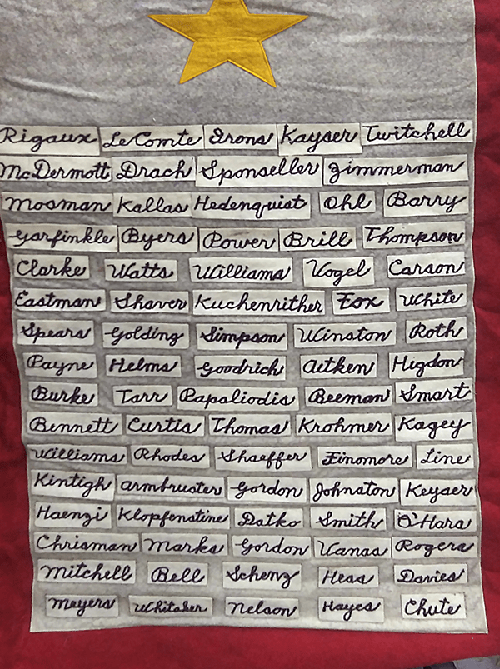 Rigaux LeComte Irons Kayser Twitchell
McDermott Drach Sponseller Zimmerman
Mosman Kallas Hedenquist Ohl Barry
Garfinkle Byers Power Brill Thompson
Clarke Watts Williams Vogel Carson
Eastman Shaver Kuchenrither Fox White
Spears Golding Simpson Winston Roth
Payne Helms Goodrich Aitken Higdon
Burke Tarr Papaliodis Beeman Smart
Bennett Curtis Thomas Krohmer Kagey
Williams Rhodes Shaeffer Finomore Line
Kintigh Armbruster Gordon Johnston Keyser
Haenzi Klopfenstine Datko Smith O'Hara
Chrisman Marks Gordon Vanas Rogers
Mitchell Bell Schenz Hess Davies
Meyers Whitaker Nelson Hayes Chute